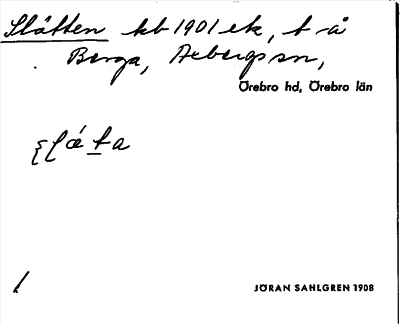 Slåtten kb 1901 ek, t å
Berga, Axbergs sn,
Örebro hd, Örebro län
JÖRAN SAHLGREN 1908